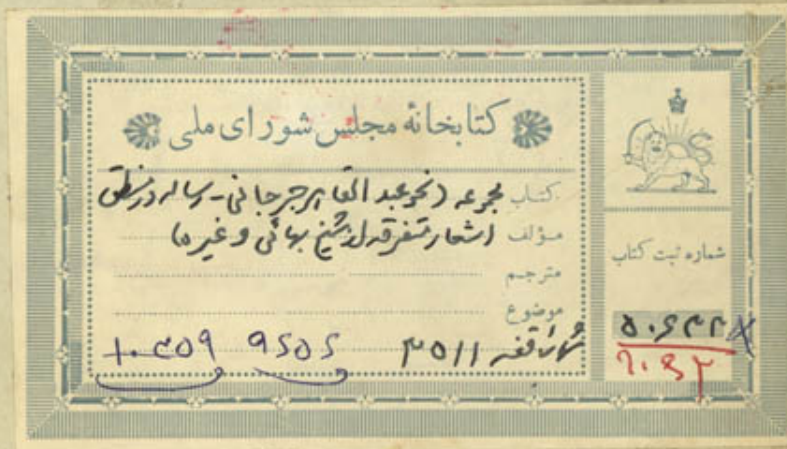 کتابخانهٔ مجلس شورای ملی
کتاب مجموعه (نحو عبدالقاهر جرجانی - رساله در منطق
مؤلف اشعار متفرقه از شیخ بهائی و غیره)
مترجم
موضوع
شماره قفسه ۳۵۱۱
۹۶۵۶
۱۰۳۵۹
شماره ثبت کتاب